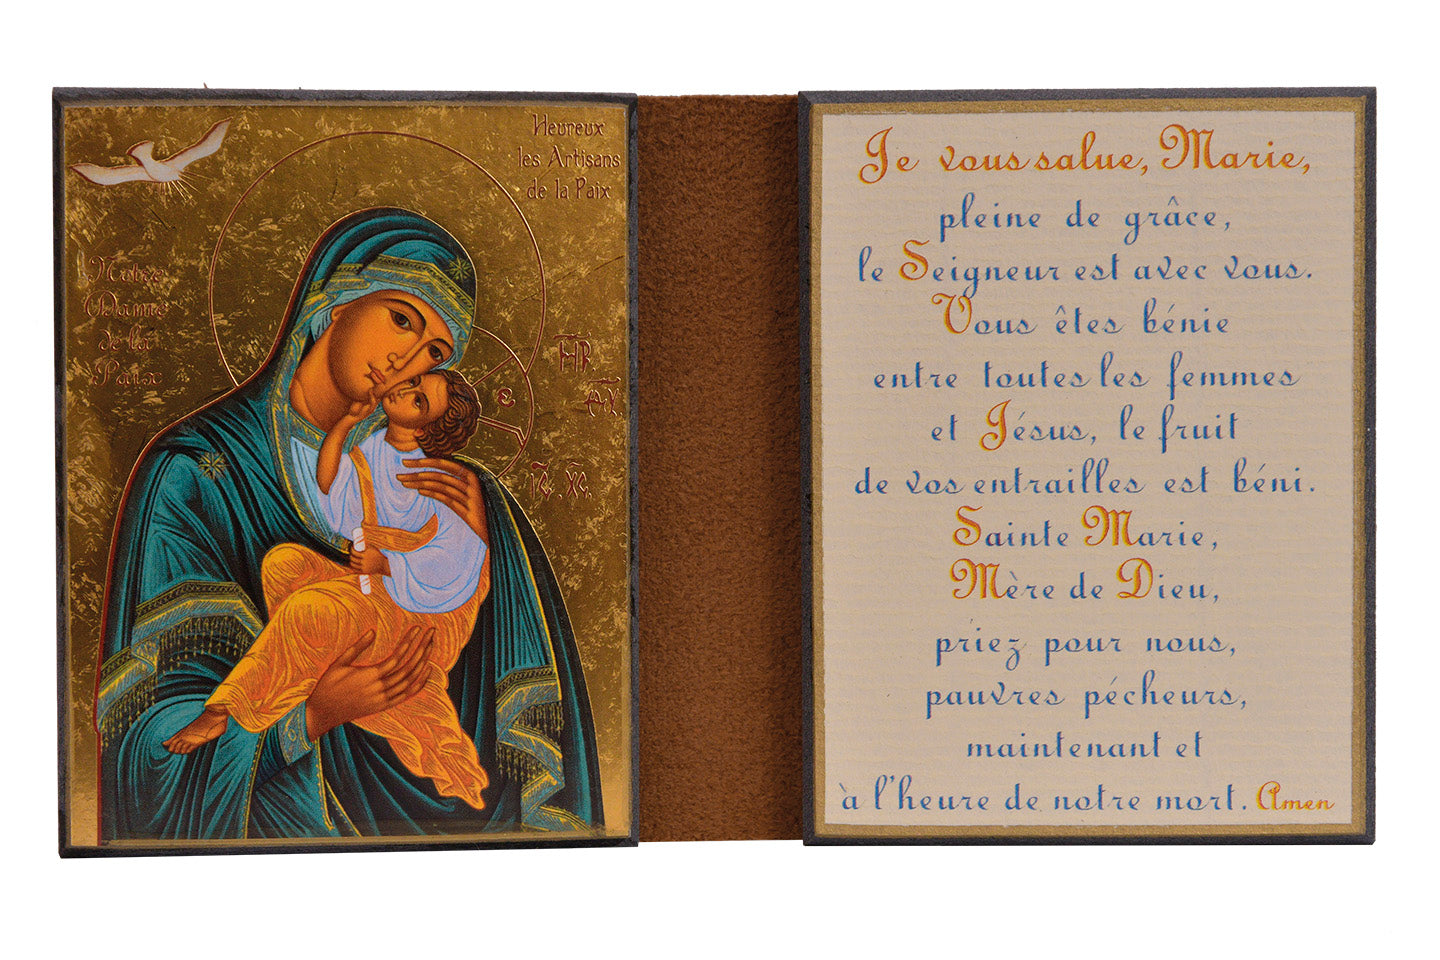 Heureux
les Artisans
de la Paix
Notre
Dame
de la
Paix
ІС ХС
Je vous salue, Marie,
pleine de grâce,
le Seigneur est avec vous.
Vous êtes bénie
entre toutes les femmes
et Jésus, le fruit
de vos entrailles est béni.
Sainte Marie,
Mère de Dieu,
priez pour nous,
pauvres pécheurs,
maintenant et
à l'heure de notre mort. Amen